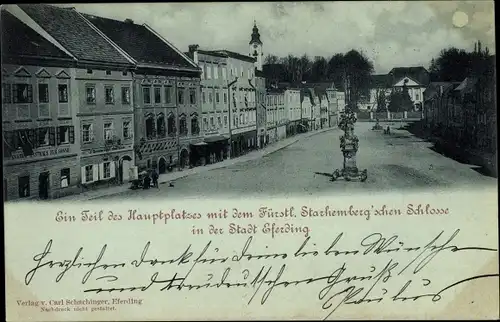 Ein Teil des Hauptplatzes mit dem Fürstl. Starhemberg'schen Schlosse
in der Stadt Eferding
Herzlichen Dank für deine lieben Wünsche
und freundschaftlichen Gruß
Paulus
Verlag v. Carl Schachinger, Eferding
Nachdruck nicht gestattet.